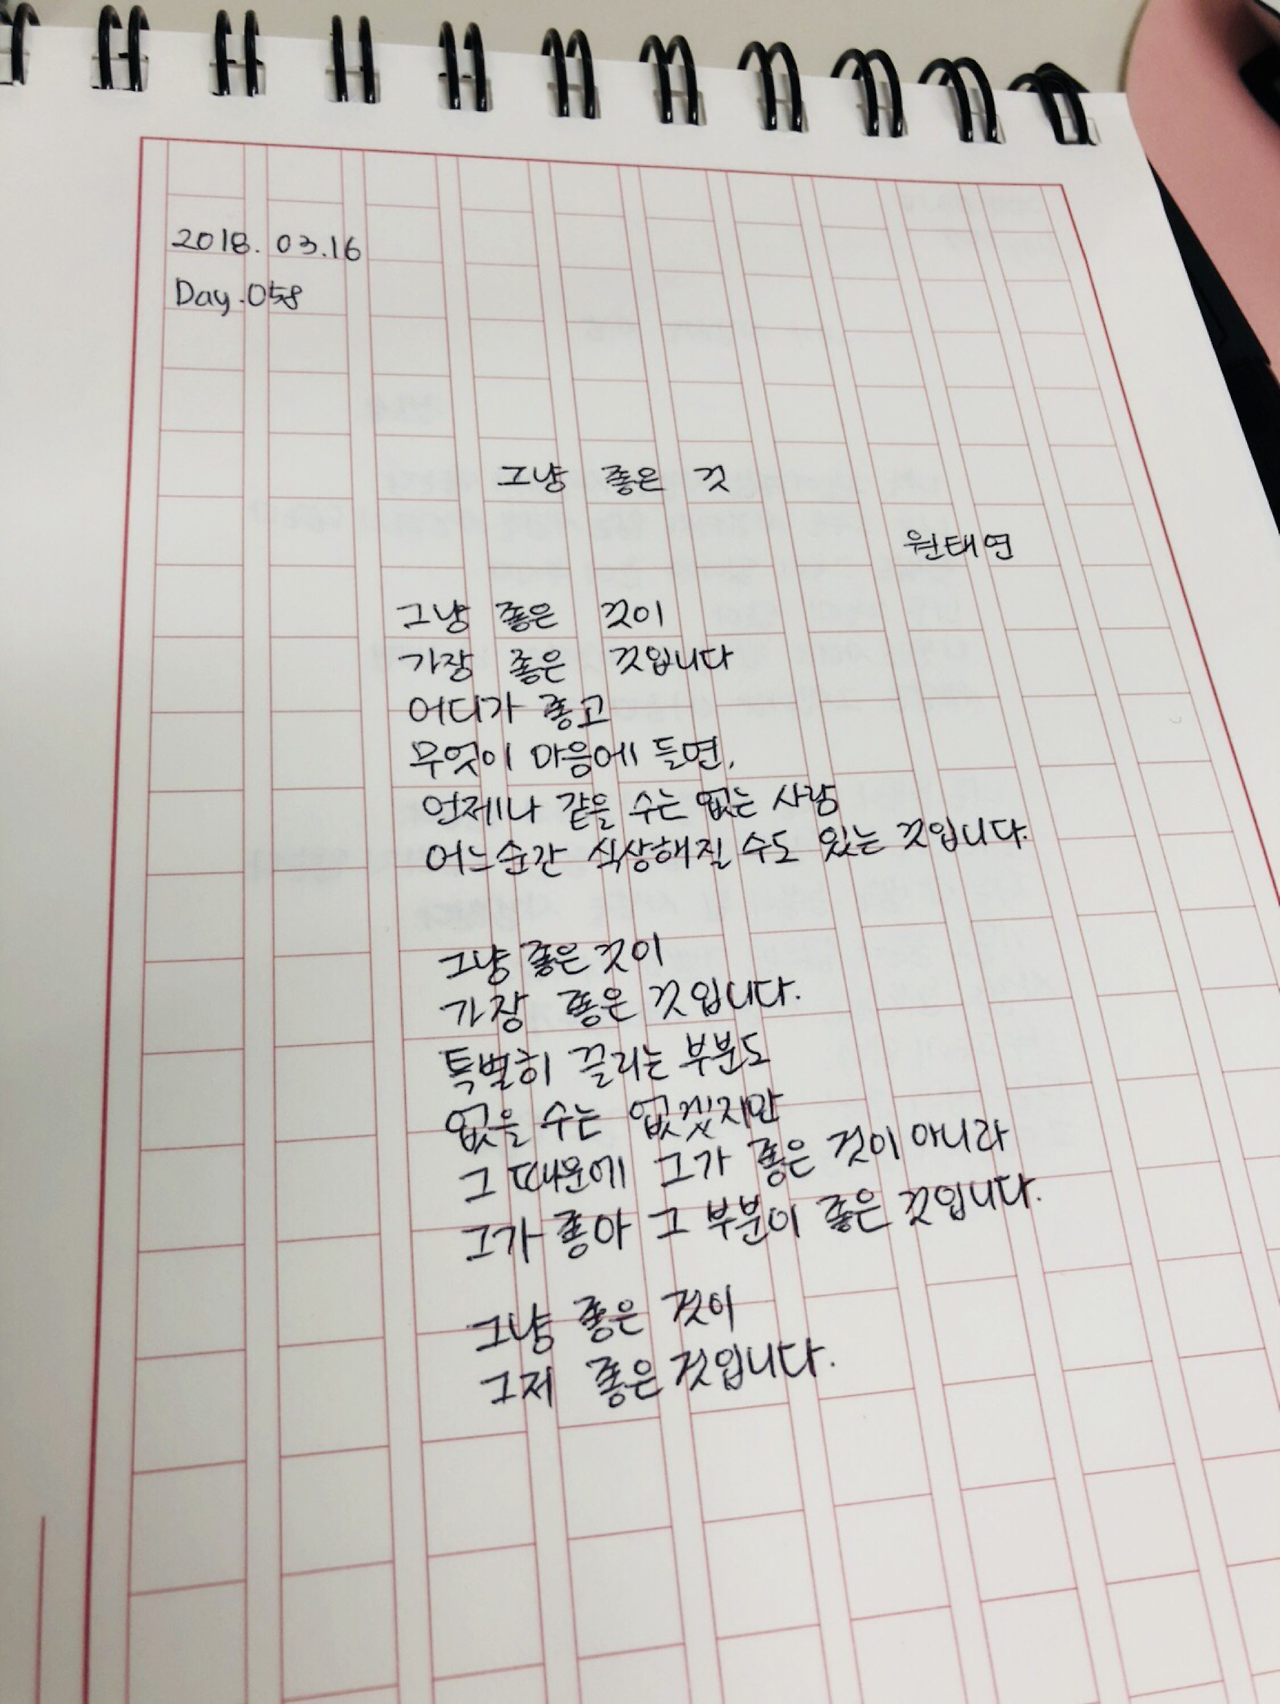 2018. 03.16
Day.058
그냥 좋은 것
원태연
그냥 좋은 것이
가장 좋은 것입니다
어디가 좋고
무엇이 마음에 들면,
언제나 같을 수는 없는 사람
어느순간 식상해질 수도 있는 것입니다.
그냥 좋은 것이
가장 좋은 것입니다.
특별히 끌리는 부분도
없을 수는 없겠지만
그 때문에 그가 좋은 것이 아니라
그가 좋아 그 부분이 좋은 것입니다.
그냥 좋은 것이
그저 좋은 것입니다.